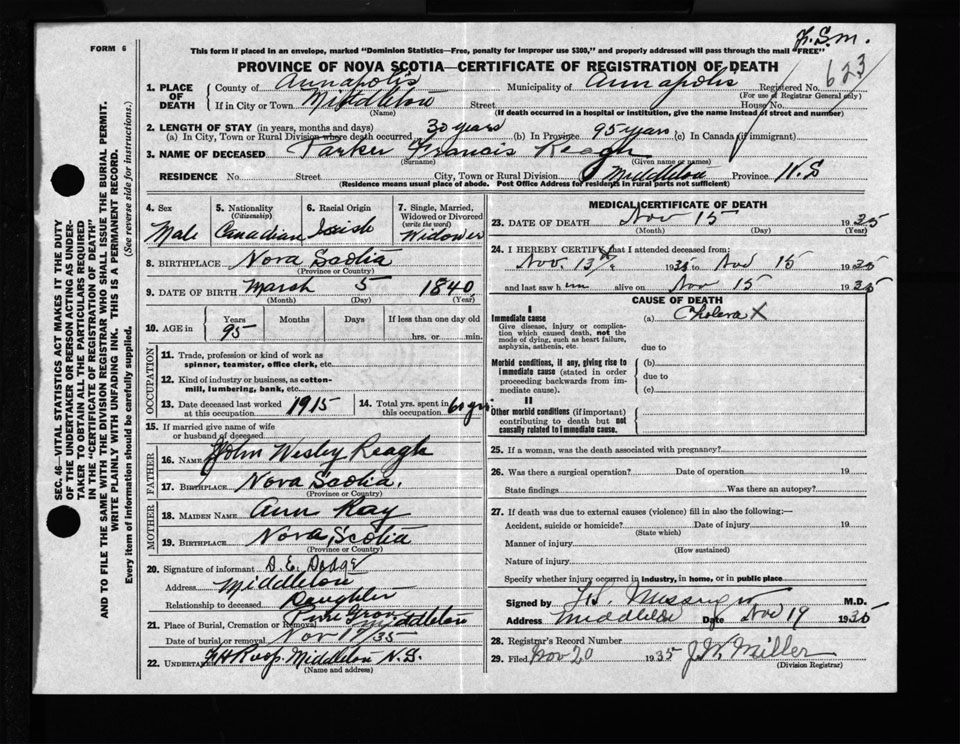 F.S.M.
FORM 6
This form if placed in an envelope, marked "Dominion Statistics—Free, penalty for improper use $300," and properly addressed will pass through the mail "FREE"
PROVINCE OF NOVA SCOTIA—CERTIFICATE OF REGISTRATION OF DEATH
623
1. PLACE OF DEATH County of Annapolis Municipality of Annapolis Registered No.
(For use of Registrar General only)
If in City or Town Middleton Street House No.
(Name) (If death occurred in a hospital or institution, give the name instead of street and number)
2. LENGTH OF STAY (in years, months and days)
(a) In City, Town or Rural Division where death occurred 30 years (b) In Province 95 years (c) In Canada (if immigrant)
3. NAME OF DECEASED Parker Francis Reagh
(Surname) (Given name or names)
RESIDENCE No. Street City, Town or Rural Division Middleton Province N.S
(Residence means usual place of abode. Post Office Address for residents in rural parts not sufficient)
SEC. 46—VITAL STATISTICS ACT MAKES IT THE DUTY
OF THE UNDERTAKER OR PERSON ACTING AS UNDER-
TAKER TO OBTAIN ALL THE PARTICULARS REQUIRED
IN THE "CERTIFICATE OF REGISTRATION OF DEATH"
AND TO FILE THE SAME WITH THE DIVISION REGISTRAR WHO SHALL ISSUE THE BURIAL PERMIT.
WRITE PLAINLY WITH UNFADING INK. THIS IS A PERMANENT RECORD.
Every item of information should be carefully supplied. (See reverse side for instructions.)
4. Sex Male
5. Nationality (Citizenship) Canadian
6. Racial Origin Irish
7. Single, Married, Widowed or Divorced (write the word) Widower
8. BIRTHPLACE Nova Scotia
(Province or Country)
9. DATE OF BIRTH March 5 1840
(Month) (Day) (Year)
10. AGE in Years Months Days If less than one day old
95 hrs. or min.
OCCUPATION
11. Trade, profession or kind of work as
spinner, teamster, office clerk, etc.
12. Kind of industry or business, as cotton-
mill, lumbering, bank, etc.
13. Date deceased last worked at this occupation 1915
14. Total yrs. spent in this occupation 60 yrs
15. If married give name of wife
or husband of deceased
FATHER
16. Name John Wesley Reagh
17. Birthplace Nova Scotia.
(Province or Country)
MOTHER
18. Maiden Name Ann Ray
19. Birthplace Nova Scotia
(Province or Country)
20. Signature of informant D. E. Dodge
Address Middleton
Relationship to deceased Daughter
21. Place of Burial, Cremation or Removal Pine Grove Middleton
Date of burial or removal Nov 17/35
22. Undertaker Middleton N.S.
(Name and address)
MEDICAL CERTIFICATE OF DEATH
23. DATE OF DEATH Nov 15 1935
(Month) (Day) (Year)
24. I HEREBY CERTIFY that I attended deceased from:
Nov. 13th 1935 to Nov 15 1935
and last saw him alive on Nov 15 1935
CAUSE OF DEATH
I
Immediate cause (a) Cholera X
Give disease, injury or complica-
tion which caused death, not the
mode of dying, such as heart failure,
asphyxia, asthenia, etc. due to
Morbid conditions, if any, giving rise to (b)
immediate cause (stated in order due to
proceeding backwards from im-
mediate cause). (c)
II
Other morbid conditions (if important)
contributing to death but not
causally related to immediate cause.
25. If a woman, was the death associated with pregnancy?
26. Was there a surgical operation? Date of operation 19
State findings Was there an autopsy?
27. If death was due to external causes (violence) fill in also the following:—
Accident, suicide or homicide? Date of injury 19
(State which)
Manner of injury
(How sustained)
Nature of injury
Specify whether injury occurred in industry, in home, or in public place
Signed by M.D.
Address Date Nov 19 1935
28. Registrar's Record Number
29. Filed Nov 20 1935 J W Miller
(Division Registrar)